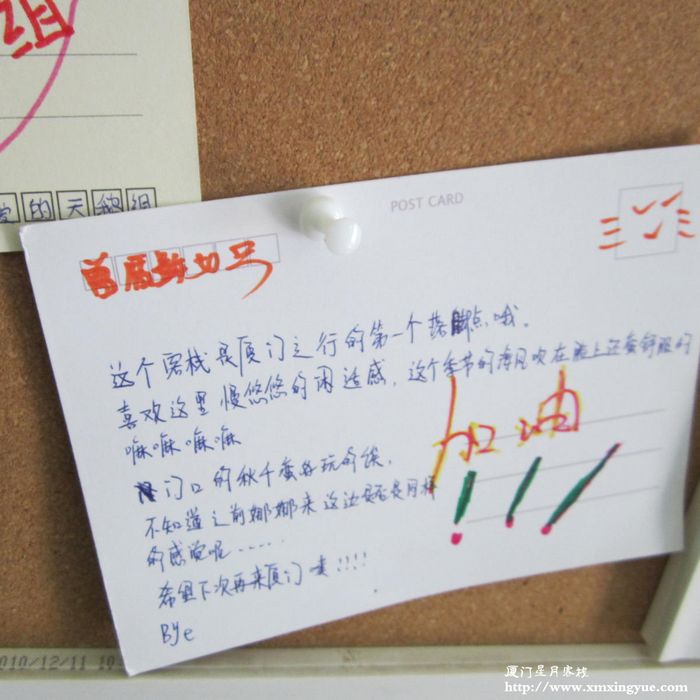 组
的天秘组
POST CARD
这个客栈是厦门之行的第一个落脚点哦.
喜欢这里慢悠悠的闲适感,这个季节的海风吹在脸上还蛮舒服的
嘛嘛嘛嘛
门口的秋千蛮好玩的候.
加油!!!
不知道之前娜娜来这边是否是同样
的感觉呢......
希望下次再来厦门噢!!!!
Bye
010/12/11 10
厦门星月客栈
http://www.xmxingyue.com